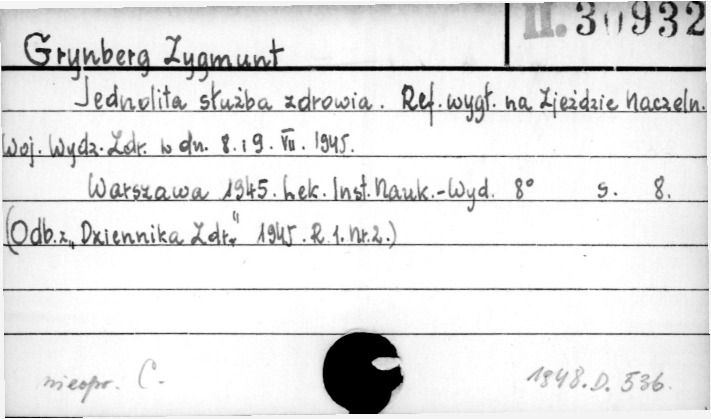 II. 30932
Grynberg Zygmunt
Jednolita służba zdrowia. Ref. wygł. na Zjeździe Naczeln.
Woj. Wydz. Zdr. w dn. 8. i 9. VII. 1945.
Warszawa 1945. Lek. Inst. Nauk.-Wyd. 8° s. 8.
(Odb. z „Dziennika Zdr." 1945. R. 1. Nr. 2.)
nieopr. C. 1948. D. 536.